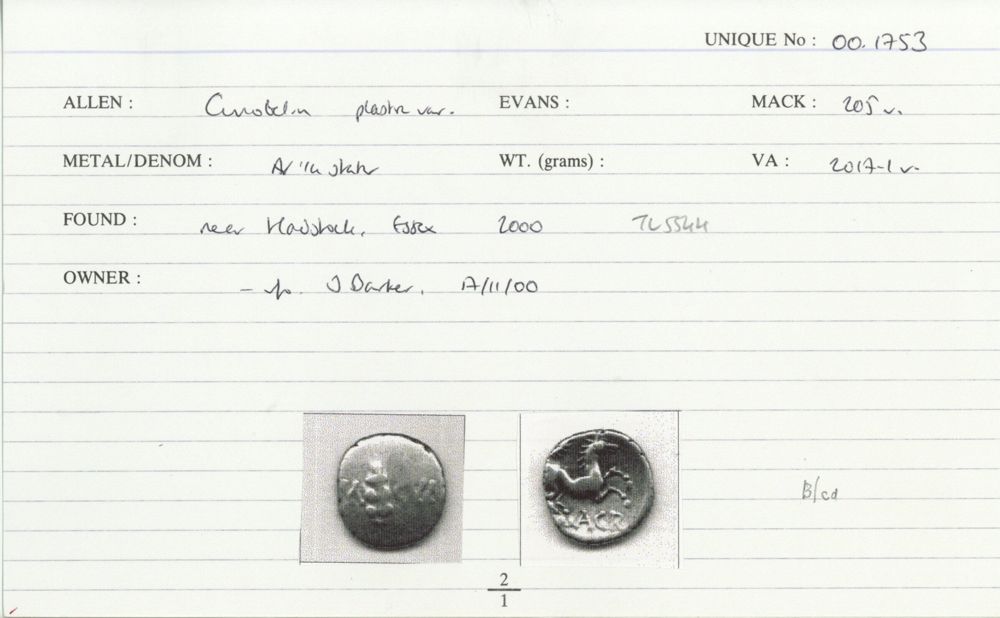 UNIQUE No : 00.1753
ALLEN : Cunobelin plastic var. EVANS : MACK : 205 v.
METAL/DENOM : AV 1/4 stater WT. (grams) : VA : 2017-1 v.
FOUND : near Hadstock, Essex 2000 TL5544
OWNER : J Barker. 17/11/00
ACR
B/cd
2
1